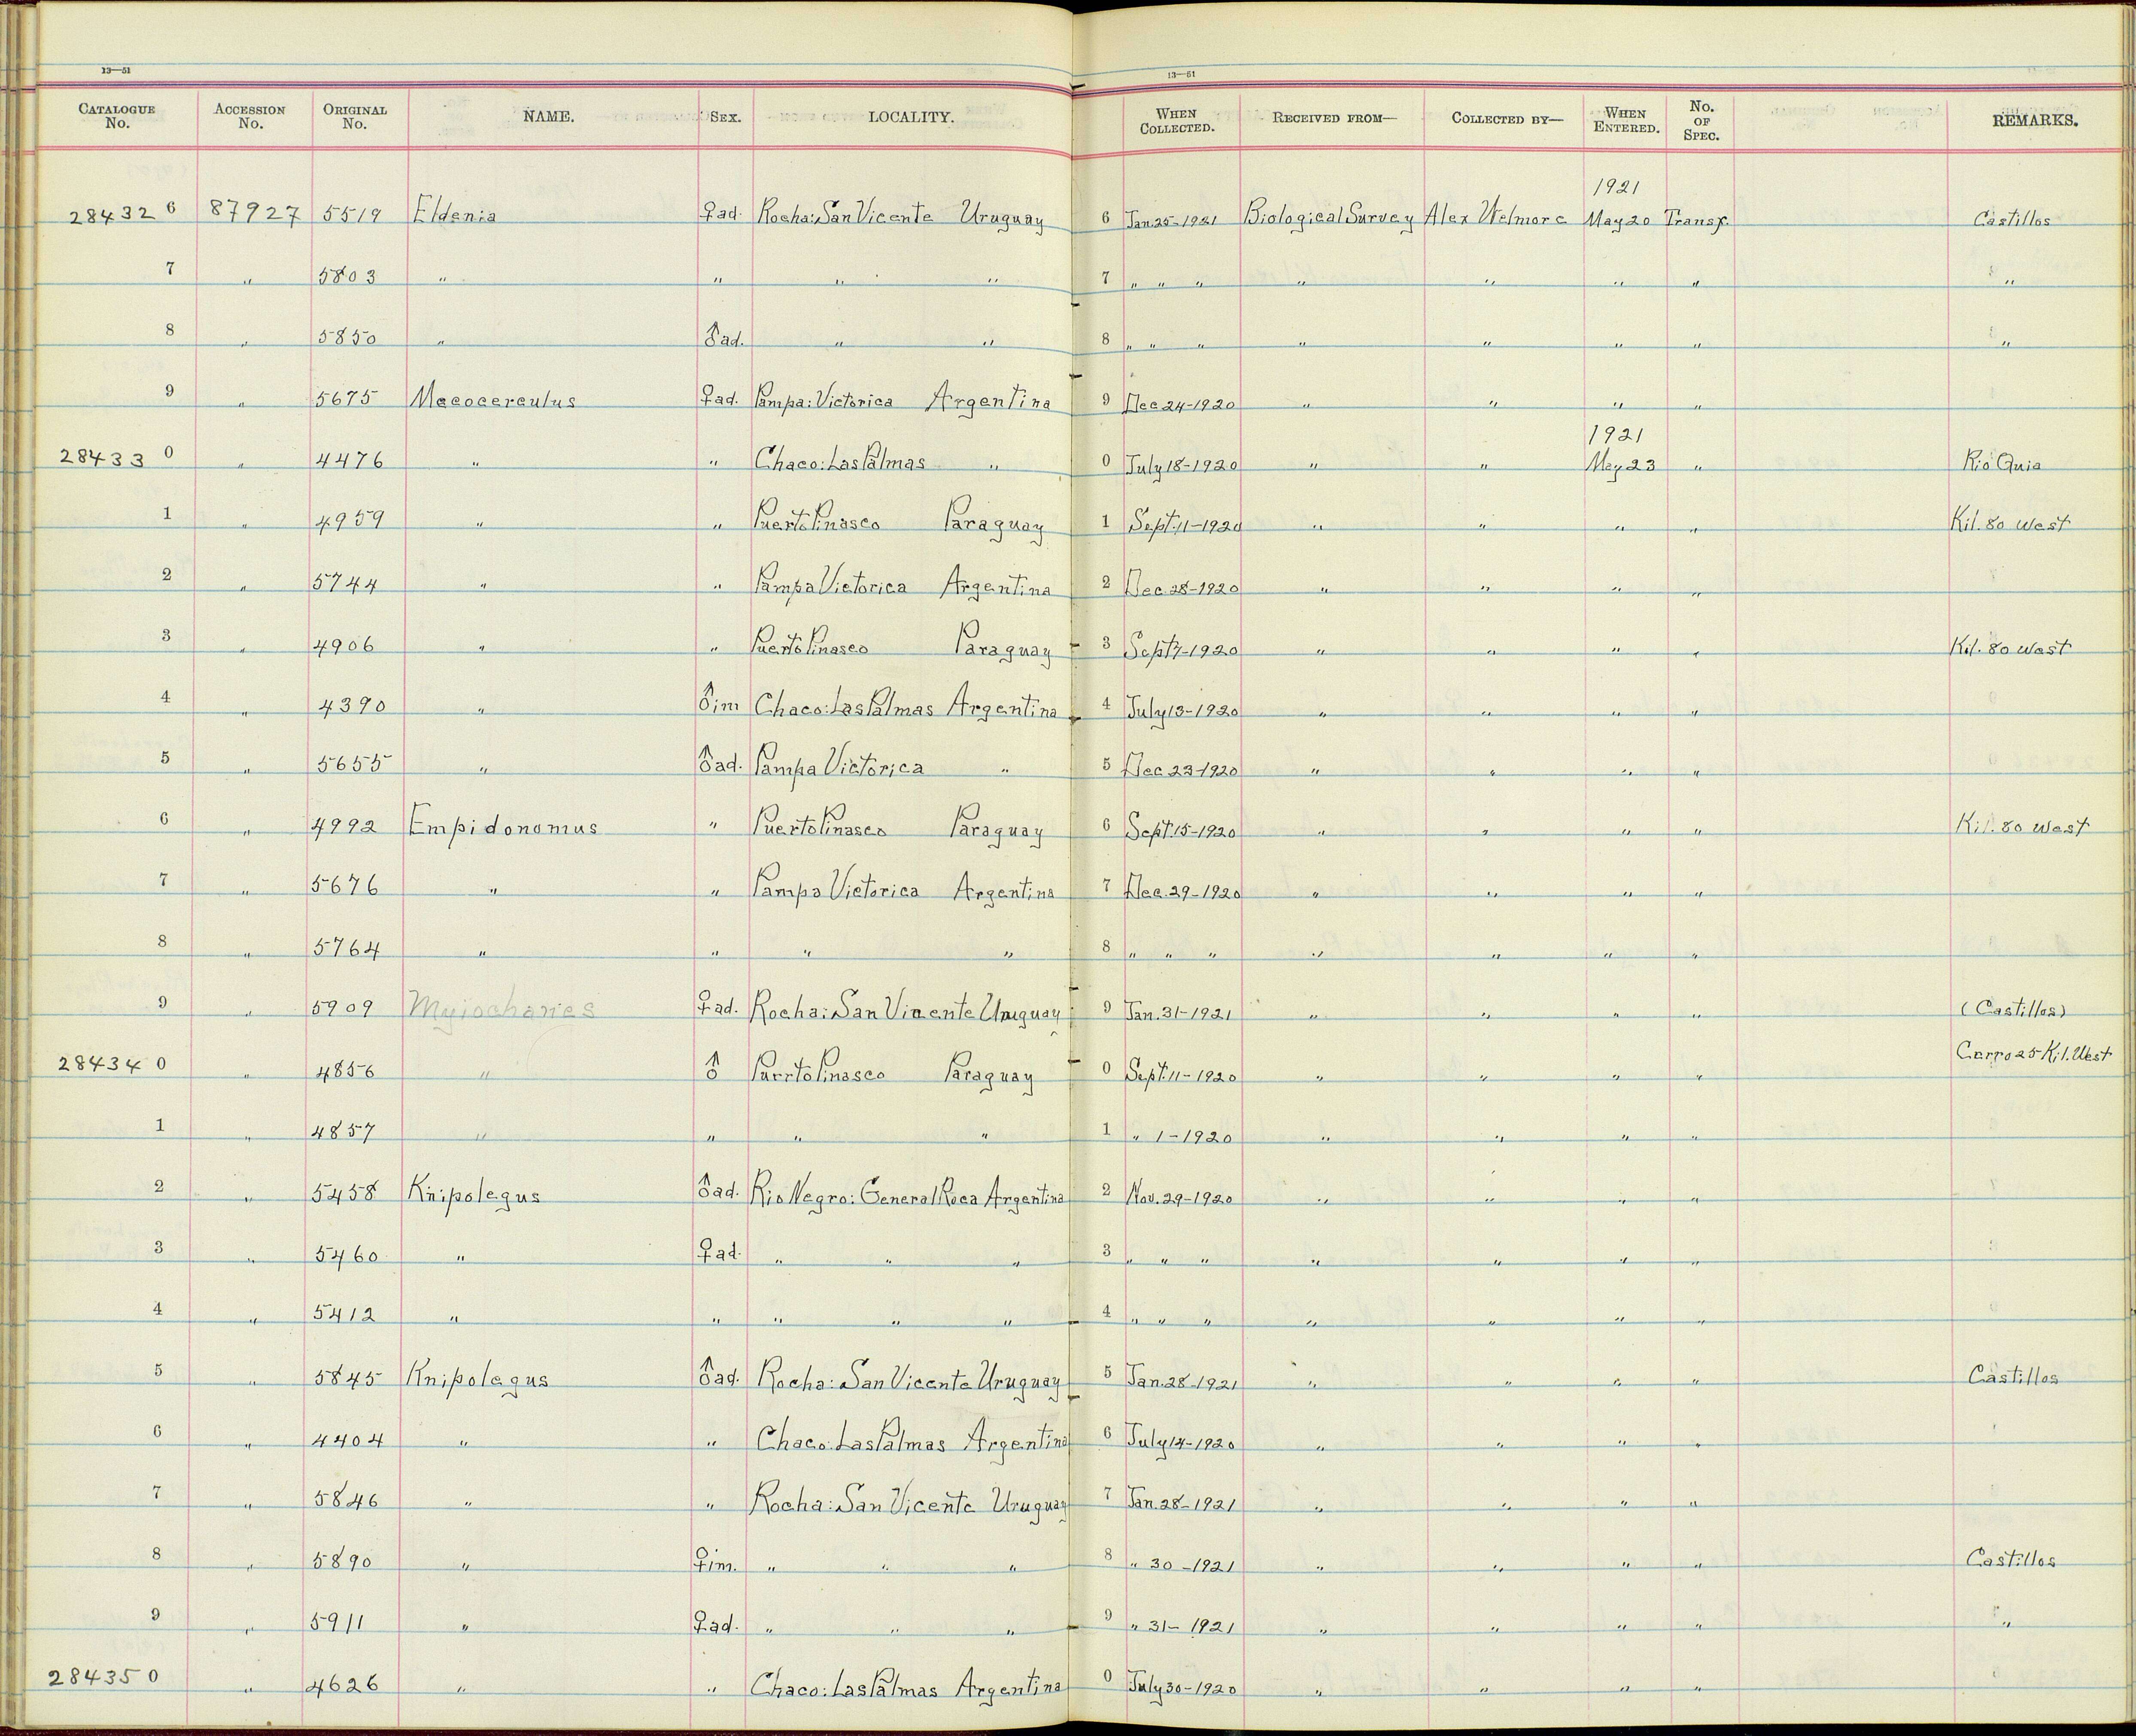 13—51 13—51
CATALOGUE No. ACCESSION No. ORIGINAL No. NAME. SEX. LOCALITY. WHEN COLLECTED. RECEIVED FROM— COLLECTED BY— WHEN ENTERED. No. OF SPEC. REMARKS.
1921
28432 6 87927 5519 Eldenia ♀ad. Rocha: San Vicente Uruguay 6 Jan. 25-1921 Biological Survey Alex Wetmore May 20 Transf. Castillos
7 " 5803 " " " " 7 " " " " " " " "
8 " 5850 " ♂ad. " " 8 " " " " " " " "
9 " 5675 Mecocerculus ♀ad. Pampa: Victorica Argentina 9 Dec 24-1920 " " " "
1921
28433 0 " 4476 " " Chaco: Las Palmas " 0 July 18-1920 " " May 23 " Rio Quia
1 " 4959 " " Puerto Pinasco Paraguay 1 Sept. 11-1920 " " " " Kil. 80 West
2 " 5744 " " Pampa Victorica Argentina 2 Dec. 28-1920 " " " "
3 " 4906 " " Puerto Pinasco Paraguay 3 Sept 7-1920 " " " " Kil. 80 West
4 " 4390 " ♂im Chaco: Las Palmas Argentina 4 July 13-1920 " " " "
5 " 5655 " ♂ad. Pampa Victorica " 5 Dec 23-1920 " " " "
6 " 4992 Empidonomus " Puerto Pinasco Paraguay 6 Sept. 15-1920 " " " " Kil. 80 West
7 " 5676 " " Pampa Victorica Argentina 7 Dec. 29-1920 " " " "
8 " 5764 " " " " 8 " " " " " " "
9 " 5909 Myiochanes ♀ad. Rocha: San Vicente Uruguay 9 Jan. 31-1921 " " " " (Castillos)
28434 0 " 4856 " ♂ Puerto Pinasco Paraguay 0 Sept. 11-1920 " " " " Cerro 25 Kil. West
1 " 4857 " " " " 1 " 1-1920 " " " "
2 " 5458 Knipolegus ♂ad. Rio Negro: General Roca Argentina 2 Nov. 29-1920 " " " "
3 " 5460 " ♀ad. " " " 3 " " " " " " "
4 " 5412 " " " " " 4 " " " " " " "
5 " 5845 Knipolegus ♂ad. Rocha: San Vicente Uruguay 5 Jan. 28-1921 " " " " Castillos
6 " 4404 " " Chaco: Las Palmas Argentina 6 July 14-1920 " " " "
7 " 5846 " " Rocha: San Vicente Uruguay 7 Jan. 28-1921 " " " "
8 " 5890 " ♀im. " " " 8 " 30-1921 " " " " Castillos
9 " 5911 " ♀ad. " " " 9 " 31-1921 " " " " "
28435 0 " 4626 " " Chaco: Las Palmas Argentina 0 July 30-1920 " " " "